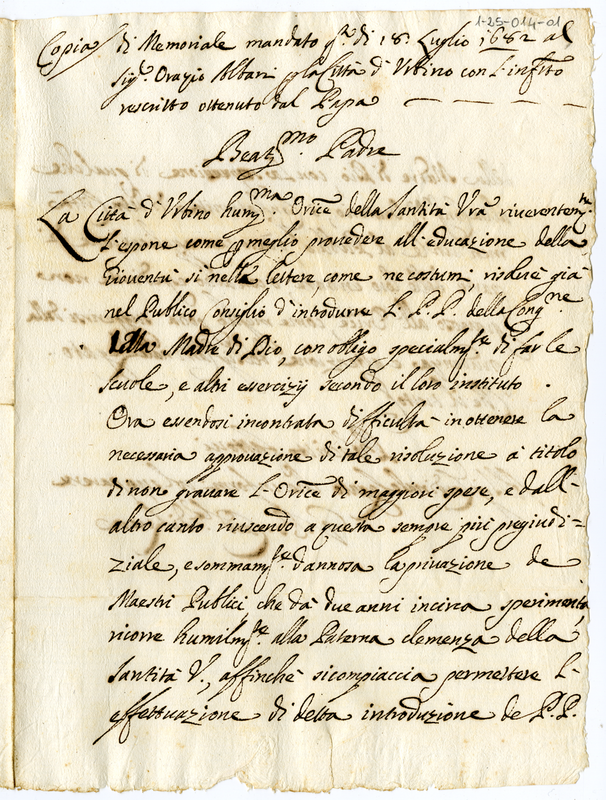 1-25-014-01
Copia di Memoriale mandato sº. di 18. Luglio 1682 al
Sigr. Orazio Albani p la Città d'Urbino con l'infrto
rescritto ottenuto dal Papa
Beatmo Padre
La Città d'Urbino humma. Orice della Santità Vra riverentemte
l'espone come p meglio provedere all'educazione della
Gioventù si nelle lettere, come ne costumi, risolvè già
nel Publico Consiglio d'introdurre li P.P. della Congne.
della Madre di Dio, con obligo specialmte. di far le
scuole, e altri essercizij secondo il loro instituto.
Ora essendosi incontrata difficultà in ottenere la
necessaria approvazione di tale risoluzione à titolo
di non gravare l'Orice di maggiori spese, e dall'
altro canto riuscendo a questa sempre più pregiudi=
ziale, e sommamte. dannosa la privazione de
Maestri Publici che da due anni incirca sperimenta,
ricorre humilmte. alla Paterna clemenza della
Santità V., affinchè si compiaccia permettere l'
effettuazione di detta introduzione de P.P.